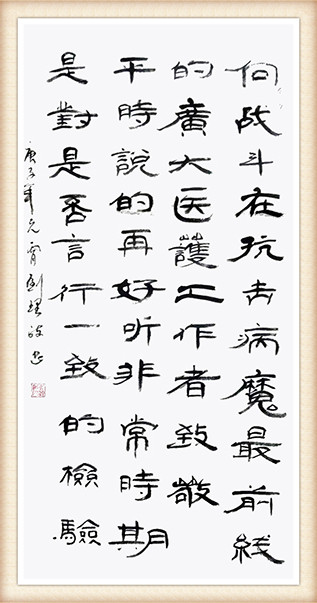 向战斗在抗击病魔最前线
的廣大医護工作者致敬
平時説的再好听非常時期
是對是否言行一致的檢驗
庚子年元宵劉理